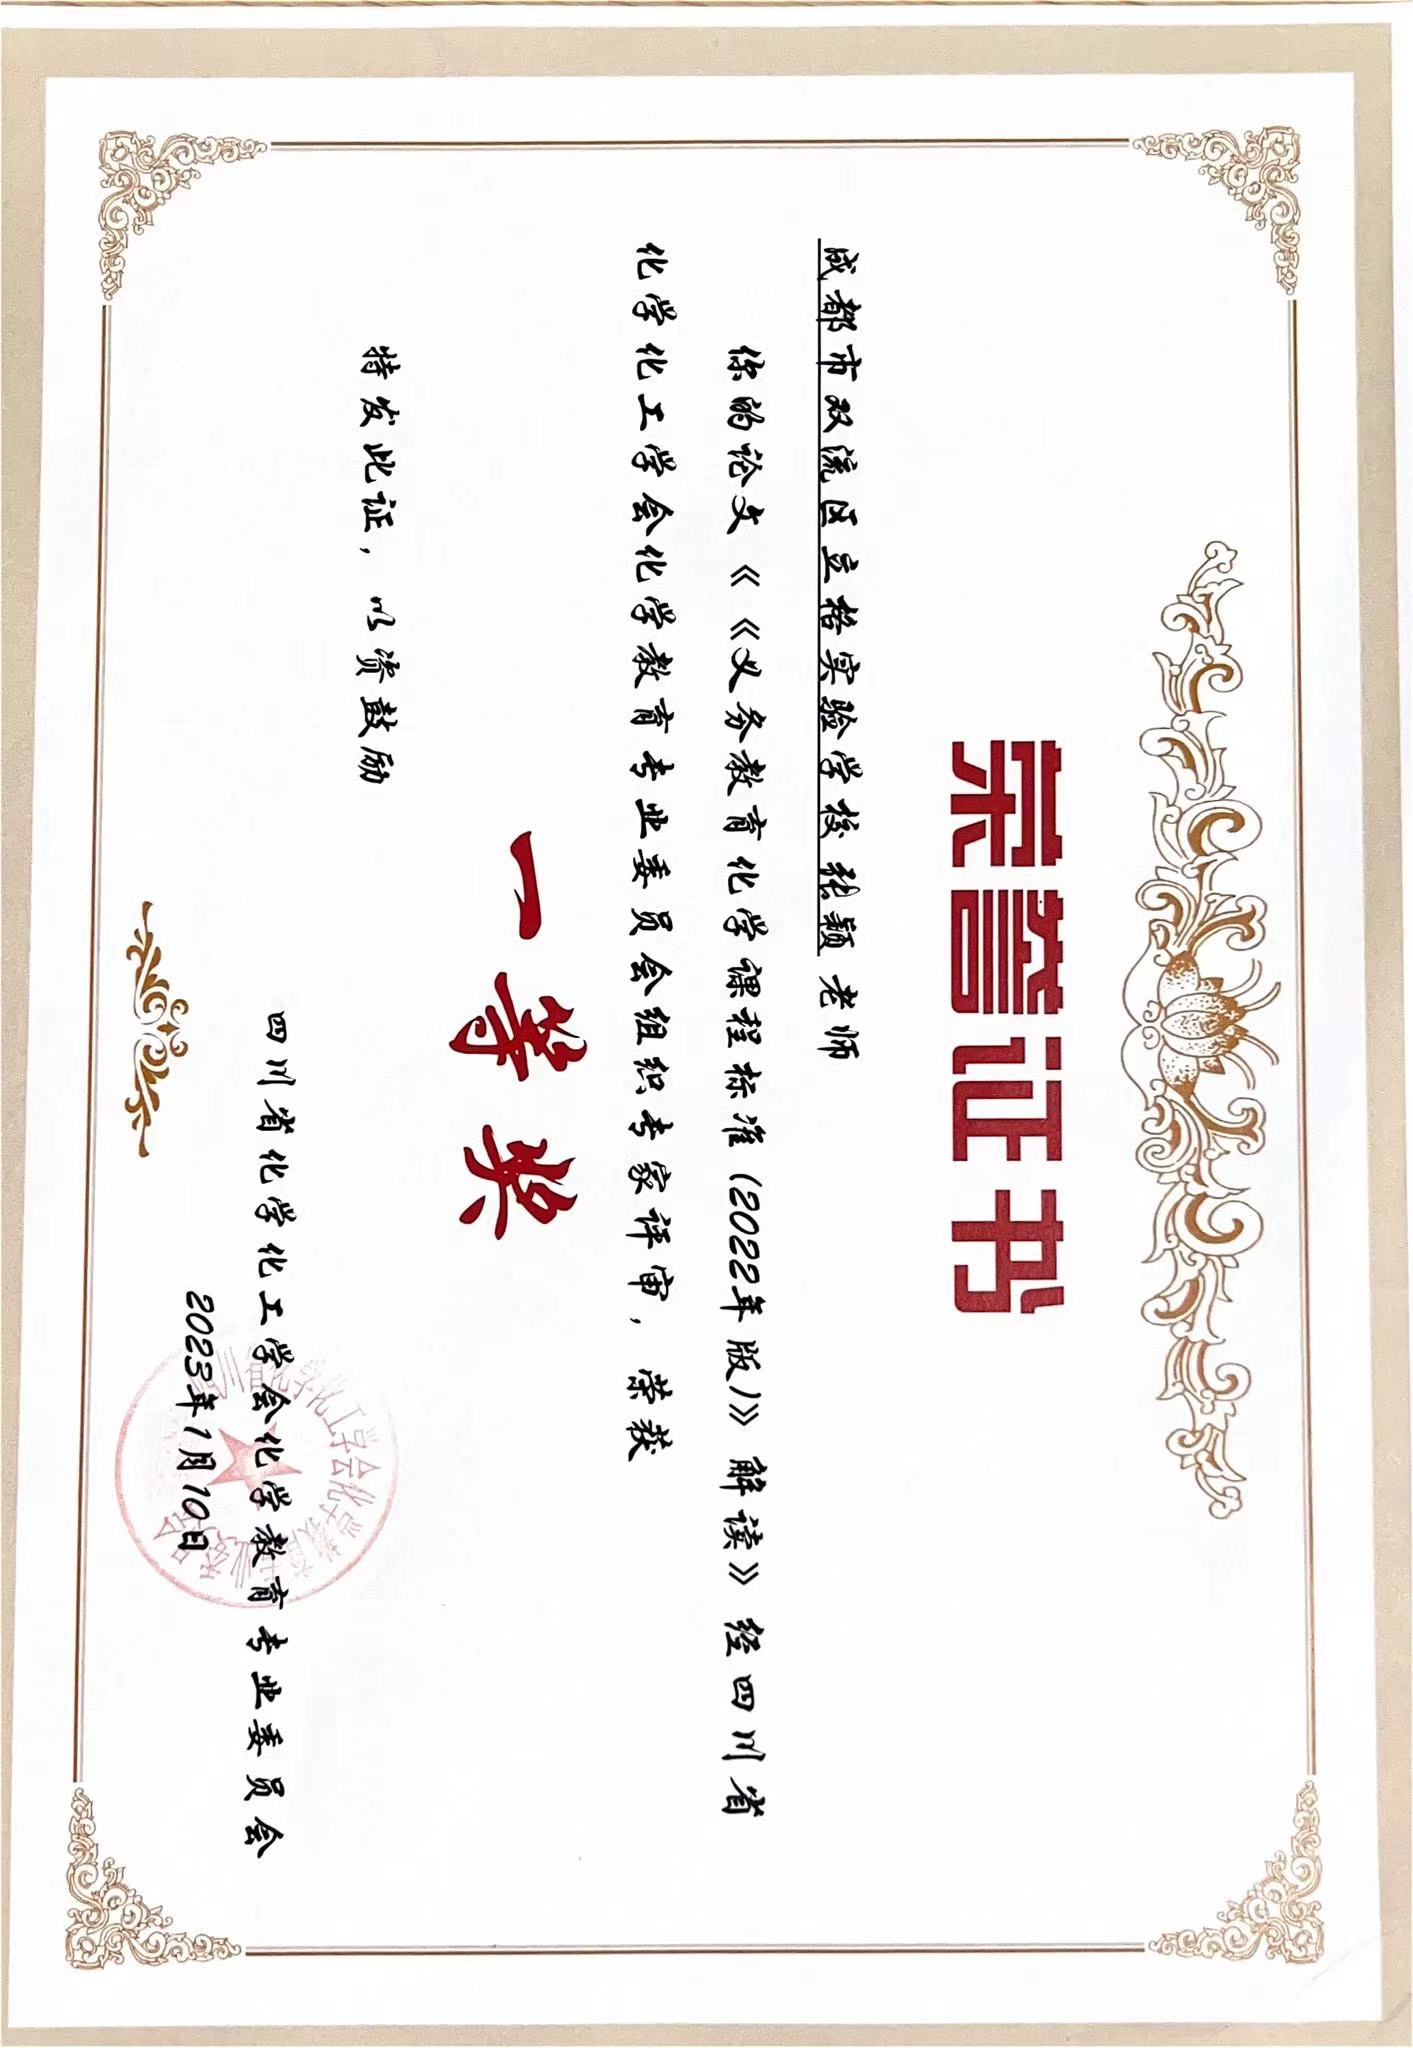 荣誉证书
成都市双流区立格实验学校张颖老师
你的论文《《义务教育化学课程标准（2022年版）》解读》经四川省
化学化工学会化学教育专业委员会组织专家评审，荣获
一等奖
特发此证，以资鼓励
四川省化学化工学会化学教育专业委员会
2023年1月10日
四川省化学化工学会化学教育专业委员会